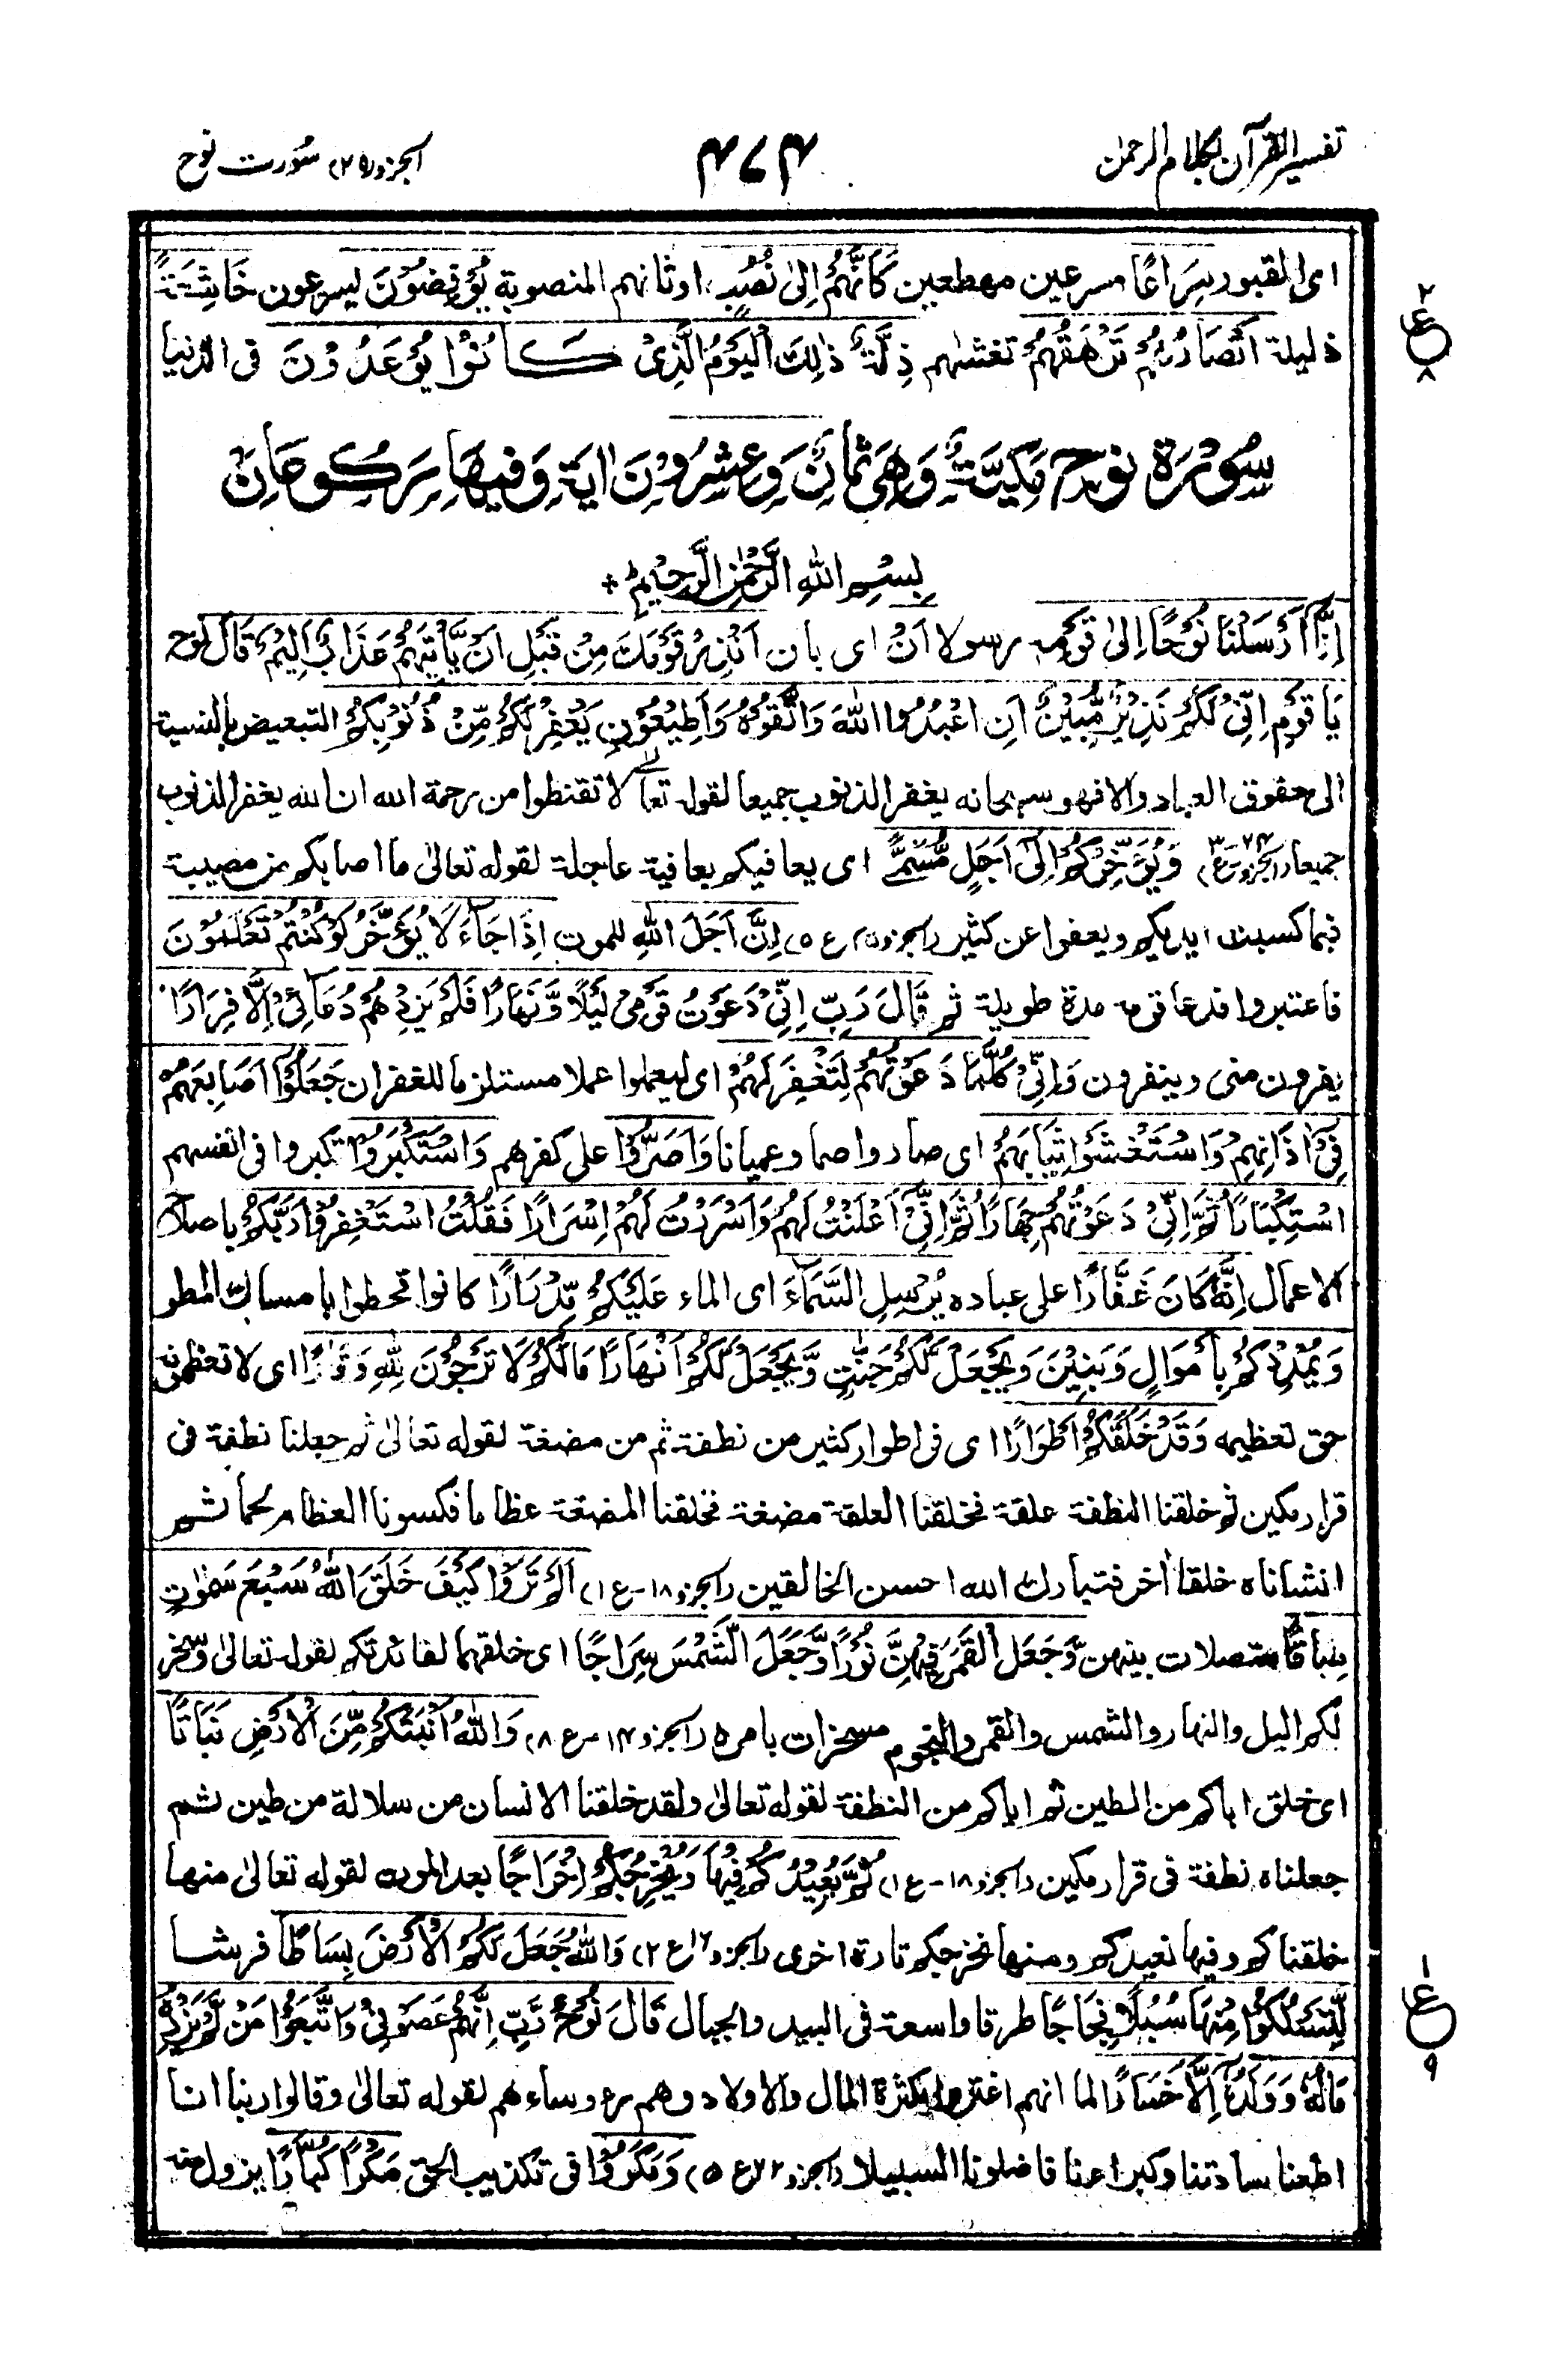 تفسير القرآن بكلام الرحمن
٣٧٣
الجزو (٢٩) سورت نوح
اى القبور سِرَاعًا مسرعين مهطعين كَاَنَّهُمْ اِلىٰ نُصُبٍ اوثانهم المنصوبة يُوْفِضُوْنَ يسرعون خَاشِعَةً
ذليلة اَبْصَارُهُمْ تَرْهَقُهُمْ تغشٰهم ذِلَّةٌ ذٰلِكَ الْيَوْمُ الَّذِىْ كَانُوْا يُوْعَدُوْنَ فى الدنيا
٢
ع
٨
سُوْرَةُ نوح مَكِيَّةٌ وَهِىَ ثَمَانٌ وَعِشْرُوْنَ اٰيَةً وَفِيْهَا رَكُوعَانِ
بِسْمِ اللّٰهِ الرَّحْمٰنِ الرَّحِيْمِ *
اِنَّآ اَرْسَلْنَا نُوْحًا اِلىٰ قَوْمِهٖ رسولا اَنْ اى بان اَنْذِرْ قَوْمَكَ مِنْ قَبْلِ اَنْ يَّأْتِيَهُمْ عَذَابٌ اَلِيْمٌ قَالَ نوح
يَا قَوْمِ اِنِّىْ لَكُمْ نَذِيْرٌ مُّبِيْنٌ اَنِ اعْبُدُوا اللّٰهَ وَاتَّقُوْهُ وَاَطِيْعُوْنِ يَغْفِرْ لَكُمْ مِّنْ ذُنُوْبِكُمْ التبعيض بالنسبة
الى حقوق العباد والا فهو سبحانه يغفر الذنوب جميعا لقوله تعالىٰ لا تقنطوا من رحمة الله ان الله يغفر الذنوب
جميعا (الجزو ٢٤ - ع ٣) وَيُؤَخِّرْكُمْ اِلىٰٓ اَجَلٍ مُّسَمًّى اى يعافيكم بعافية عاجلة لقوله تعالىٰ ما اصابكم من مصيبة
فبما كسبت ايديكم ويعفوا عن كثير (الجزو ٢٥ ع ٥) اِنَّ اَجَلَ اللّٰهِ للموت اِذَا جَآءَ لَا يُؤَخَّرُ لَوْ كُنْتُمْ تَعْلَمُوْنَ
فاعتبروا فدعا قومه مدة طويلة ثم قَالَ رَبِّ اِنِّىْ دَعَوْتُ قَوْمِىْ لَيْلًا وَّنَهَارًا فَلَمْ يَزِدْهُمْ دُعَآئِىْٓ اِلَّا فِرَارًا
يفرون منى وينفرون وَاِنِّىْ كُلَّمَا دَعَوْتُهُمْ لِتَغْفِرَ لَهُمْ اى ليعملوا عملا مستلزما للغفران جَعَلُوْٓا اَصَابِعَهُمْ
فِىْٓ اٰذَانِهِمْ وَاسْتَغْشَوْا ثِيَابَهُمْ اى صاروا صما وعميانا وَاَصَرُّوْا على كفرهم وَاسْتَكْبَرُوا تكبروا فى انفسهم
اسْتِكْبَارًا ثُمَّ اِنِّىْ دَعَوْتُهُمْ جِهَارًا ثُمَّ اِنِّىْٓ اَعْلَنْتُ لَهُمْ وَاَسْرَرْتُ لَهُمْ اِسْرَارًا فَقُلْتُ اسْتَغْفِرُوْا رَبَّكُمْ باصلاح
الاعمال اِنَّهٗ كَانَ غَفَّارًا على عباده يُرْسِلِ السَّمَآءَ اى الماء عَلَيْكُمْ مِّدْرَارًا كانوا قحطوا بامساك المطر
وَيُمْدِدْكُمْ بِاَمْوَالٍ وَبَنِيْنَ وَيَجْعَلْ لَّكُمْ جَنّٰتٍ وَّيَجْعَلْ لَّكُمْ اَنْهَارًا مَا لَكُمْ لَا تَرْجُوْنَ لِلّٰهِ وَقَارًا اى لا تعظمونه
حق تعظيمه وَقَدْ خَلَقَكُمْ اَطْوَارًا اى فى اطوار كثير من نطفة ثم من مضغة لقوله تعالىٰ ثم جعلنا نطفة فى
قرار مكين ثم خلقنا النطفة علقة فخلقنا العلقة مضغة فخلقنا المضغة عظاما فكسونا العظام لحما ثم
انشاناه خلقا اٰخر فتبارك الله احسن الخالقين (الجزو ١٨ - ع ١) اَلَمْ تَرَوْا كَيْفَ خَلَقَ اللّٰهُ سَبْعَ سَمٰوٰتٍ
طِبَاقًا متصلات بينهن وَّجَعَلَ الْقَمَرَ فِيْهِنَّ نُوْرًا وَّجَعَلَ الشَّمْسَ سِرَاجًا اى خلقهما لفائدتكم لقوله تعالىٰ وسّخر
لكم اليل والنهار والشمس والقمر والنجوم مسخرات بامره (الجزو ١٤ - ع ٨) وَاللّٰهُ اَنْبَتَكُمْ مِّنَ الْاَرْضِ نَبَاتًا
اى خلق اباكم من الطين ثم اياكم من النطفة لقوله تعالىٰ ولقد خلقنا الانسان من سلالة من طين ثم
جعلناه نطفة فى قرار مكين (الجزو ١٨ - ع ١) ثُمَّ يُعِيْدُكُمْ فِيْهَا وَيُخْرِجُكُمْ اِخْرَاجًا بعد الموت لقوله تعالىٰ منها
خلقناكم وفيها نعيدكم ومنها نخرجكم تارة اخرى (الجزو ١٦ ع ٢) وَاللّٰهُ جَعَلَ لَكُمُ الْاَرْضَ بِسَاطًا فرشا
لِّتَسْلُكُوْا مِنْهَا سُبُلًا فِجَاجًا طرقا واسعة فى البيد والجبال قَالَ نُوْحٌ رَّبِّ اِنَّهُمْ عَصَوْنِىْ وَاتَّبَعُوْا مَنْ لَّمْ يَزِدْهُ
١
ع
٩
مَالُهٗ وَوَلَدُهٗٓ اِلَّا خَسَارًا لما انهم اغتروا بكثرة المال والاولاد وهم رءوساءهم لقوله تعالىٰ وقالوا ربنا انا
اطعنا سادتنا وكبراءنا فاضلونا السبيلا (الجزو ٢٢ ع ٥) وَمَكَرُوْا فى تكذيب الحق مَكْرًا كُبَّارًا